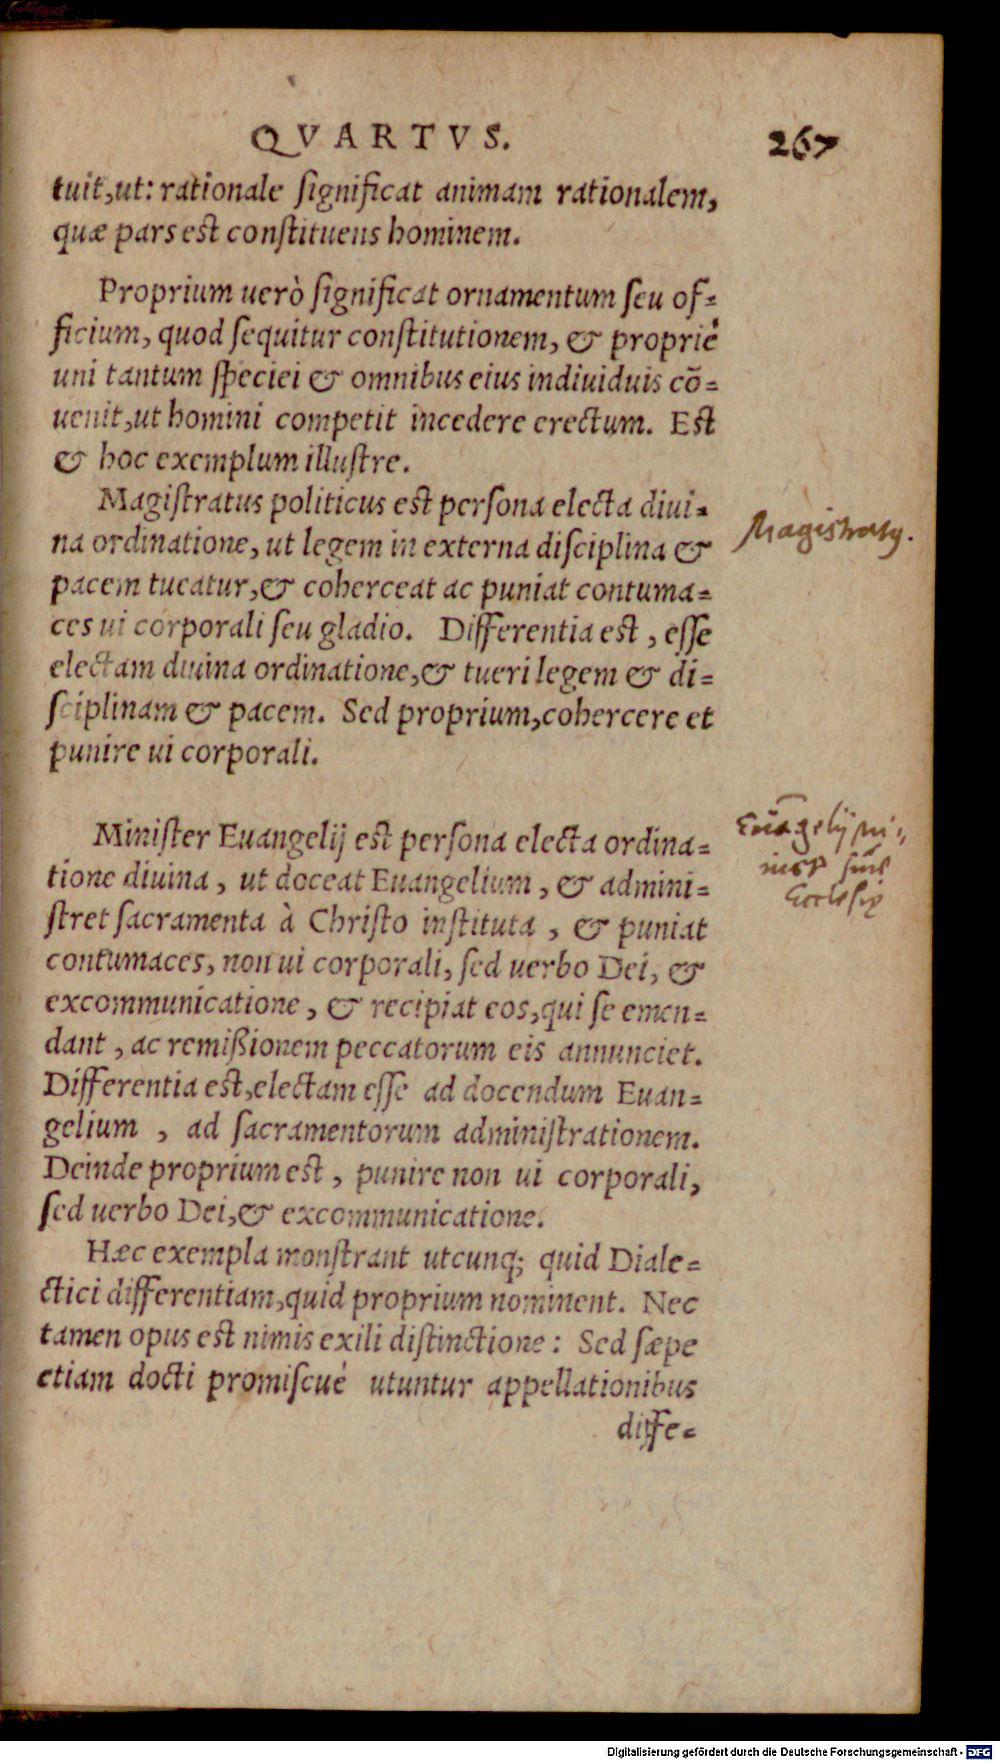 QVARTVS. 267
tuit, ut: rationale ſignificat animam rationalem,
quæ pars est conſtituens hominem.
Proprium uerò ſignificat ornamentum ſeu of-
ficium, quod ſequitur conſtitutionem, & propriè
uni tantum ſpeciei & omnibus eius indiuiduis cõ-
uenit, ut homini competit incedere erectum. Est
& hoc exemplum illuſtre.
Magiſtratus politicus est perſona electa diui-
na ordinatione, ut legem in externa diſciplina &
pacem tueatur, & coherceat ac puniat contuma-
ces ui corporali ſeu gladio. Differentia est, eſſe
electam diuina ordinatione, & tueri legem & di-
ſciplinam & pacem. Sed proprium, cohercere et
punire ui corporali.
Magistratus.
Miniſter Euangelij est perſona electa ordina-
tione diuina, ut doceat Euangelium, & admini-
ſtret ſacramenta à Chriſto inſtituta, & puniat
contumaces, non ui corporali, ſed uerbo Dei, &
excommunicatione, & recipiat eos, qui ſe emen-
dant, ac remißionem peccatorum eis annunciet.
Differentia est, electam eſſe ad docendum Euan-
gelium, ad ſacramentorum adminiſtrationem.
Deinde proprium est, punire non ui corporali,
ſed uerbo Dei, & excommunicatione.
Euãgelij mi-
nister siue
Ecclesię
Hæc exempla monſtrant utcunq; quid Diale-
ctici differentiam, quid proprium nominent. Nec
tamen opus est nimis exili diſtinctione: Sed ſæpe
etiam docti promiſcuè utuntur appellationibus
diffe-
Digitalisierung gefördert durch die Deutsche Forschungsgemeinschaft - DFG